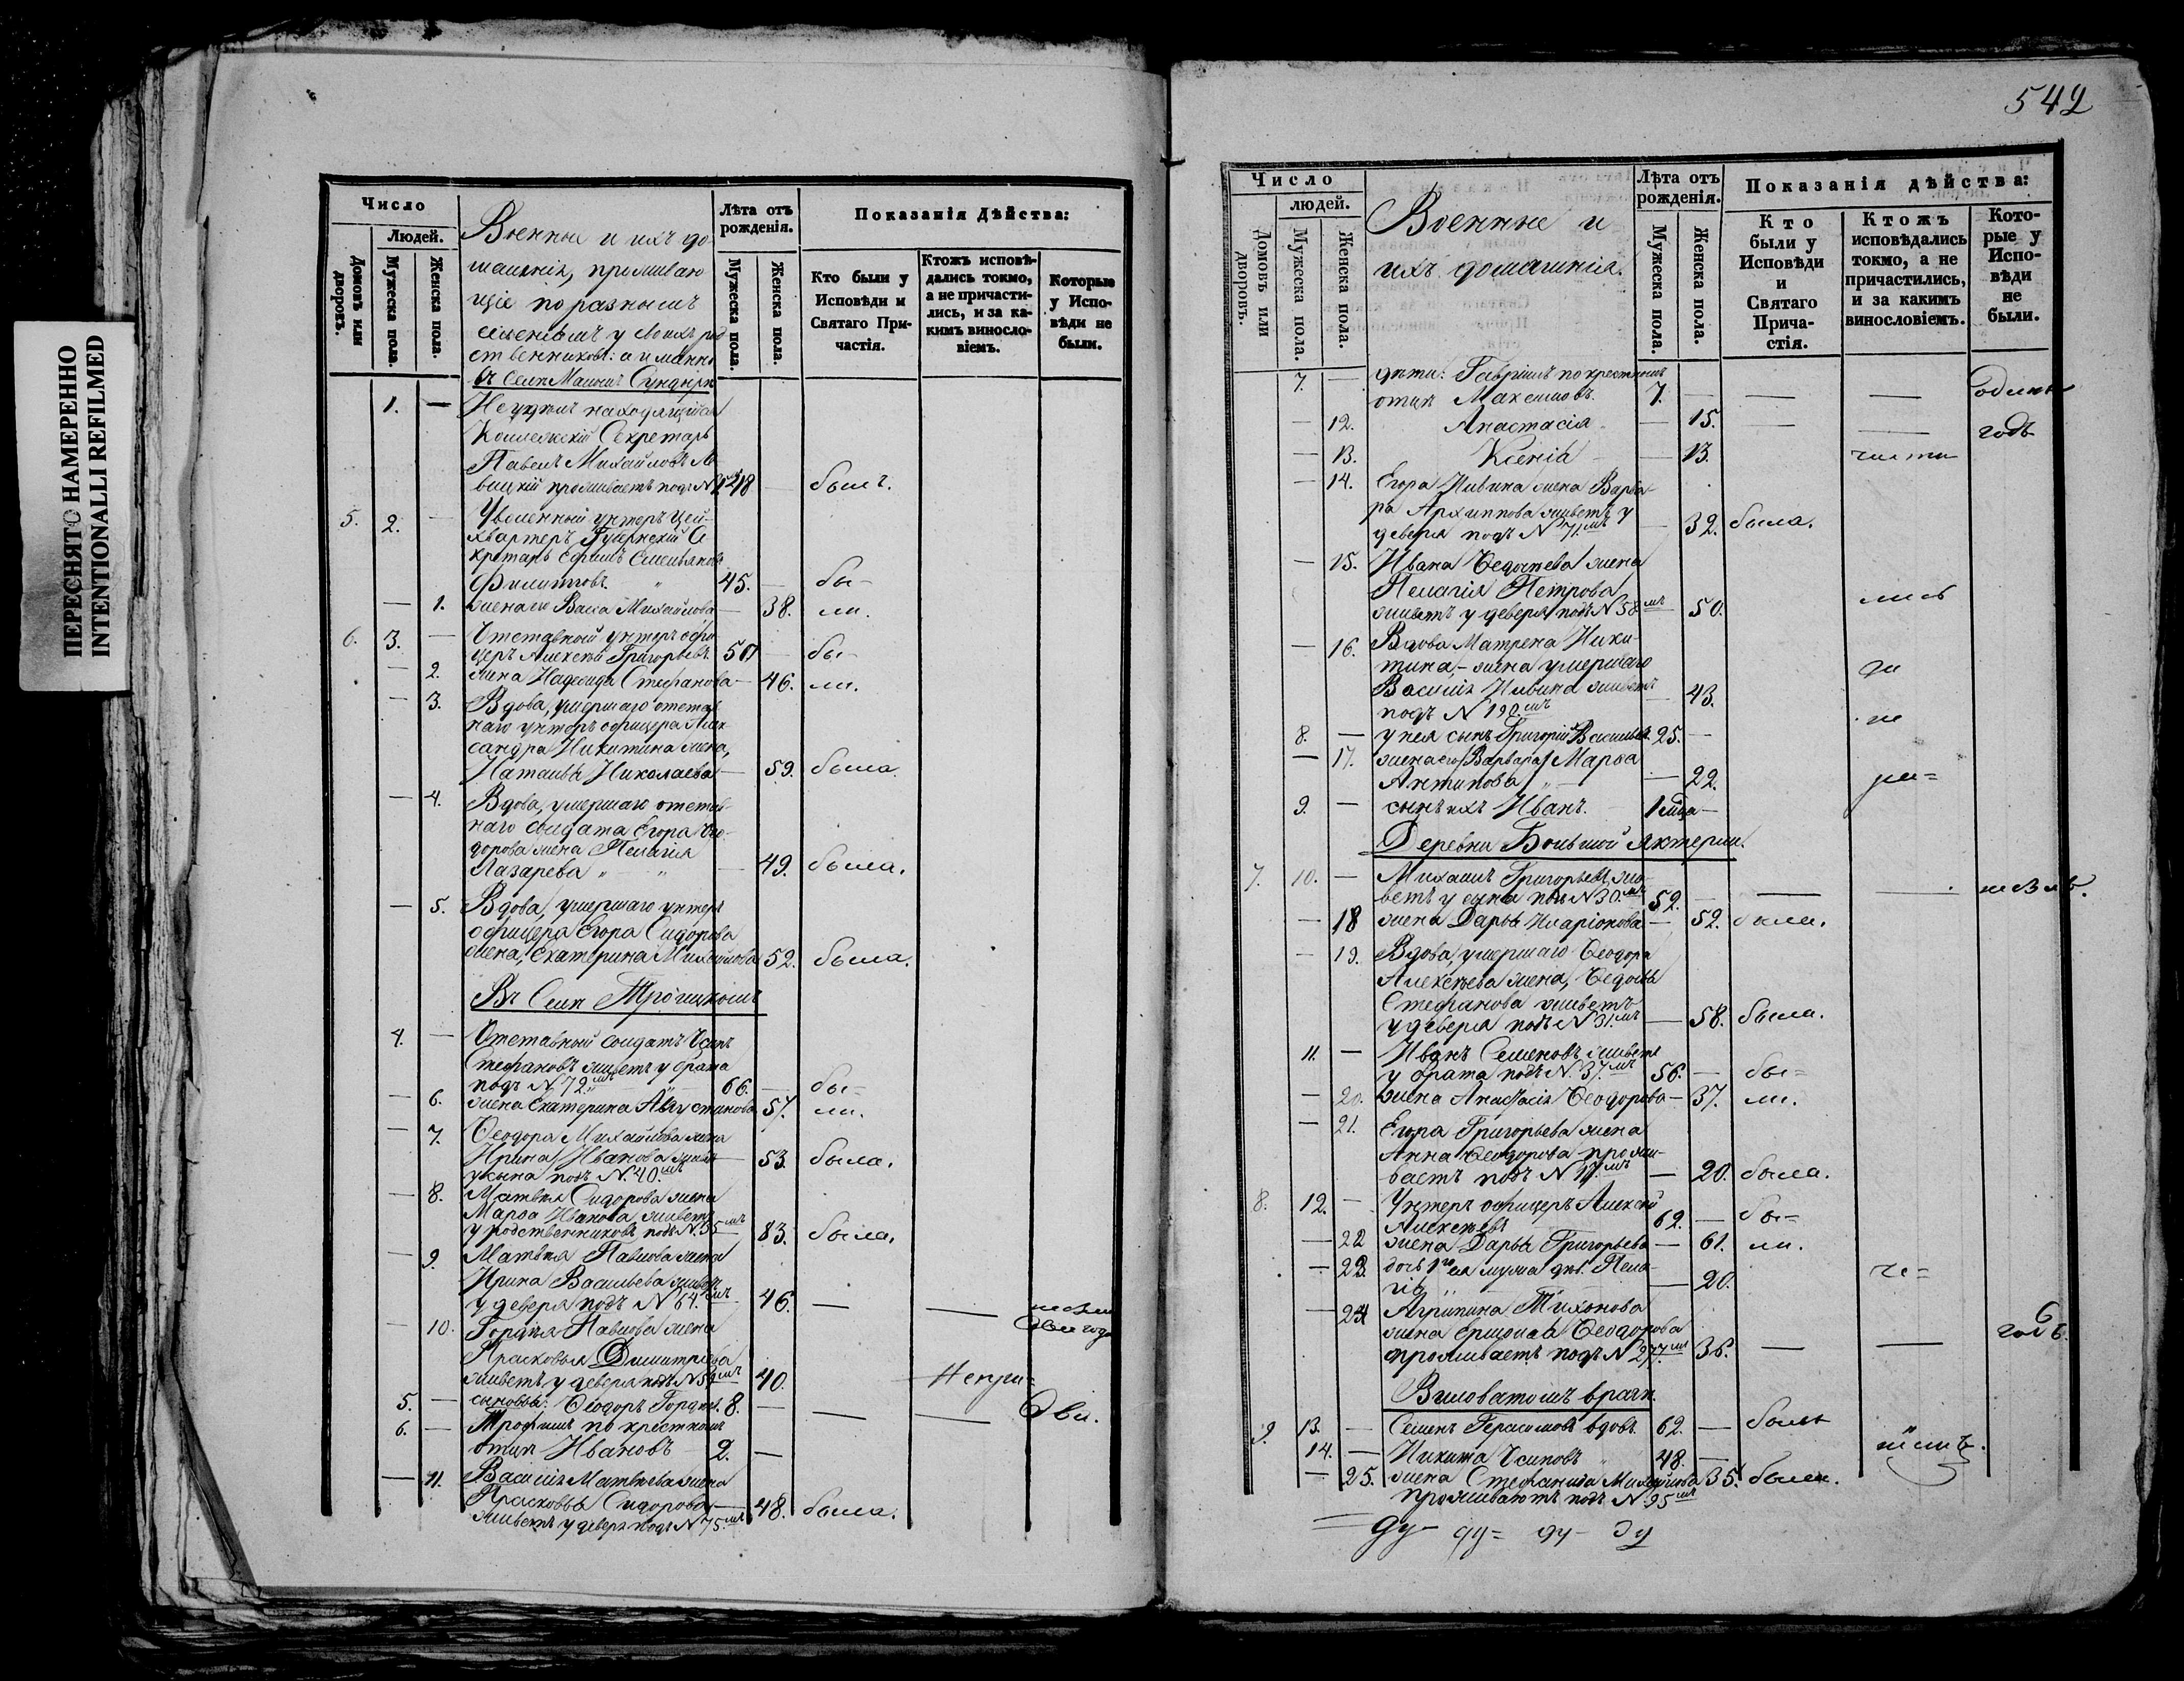 ПЕРЕСНЯТО НАМЕРЕННО
INTENTIONALLI REFILMED
Число
Людей.
Домовъ или дворовъ.
Мужеска пола.
Женска пола.
Военные и ихъ до-
машнія, проживаю
щіе по разнымъ
селеніямъ у своихъ род
ственниковъ: а именно
Въ селѣ Маломъ Сундырѣ
Лѣта отъ рожденія.
Мужеска пола.
Женска пола.
Показанія Дѣйства:
Кто были у Исповѣди и Святаго При-частія.
Ктожъ исповѣ-дались токмо, а не причасти-лись, и за ка-кимъ винословіемъ.
Которые у Испо-вѣди не были.
1. — находящійся
Коллежскій Секретарь
Павелъ Михайловъ
проживаетъ подъ № 48 — былъ.
5. 2. — Уволенный унтеръ цей-
хвартеръ, Губернскій Се
кретарь Ефимъ Емельяновъ
Филипповъ. " 45. — бы-
— 1. жена его Васса Михайлова — 38. ли.
6. 3. — Отставной унтеръ офи
церъ Алексѣй Григорьевъ 50 — бы-
— 2. жена Надежда Стефанова — 46. ли.
— 3. Вдова, умершаго отстав
наго унтеръ офицера Алек
сандра Никитина жена,
Наталья Николаева — 59. была.
— 4. Вдова, умершаго отстав-
наго солдата Егора Ѳео-
дорова жена Пелагія
Лазарева " " — 49. была.
— 5. Вдова, умершаго унтеръ
офицера Егора Сидорова
жена, Екатерина Михайлова 52. была.
Въ Селѣ Троицкомъ
4. — Отставной солдатъ Осипъ
Стефановъ живетъ у брата
подъ № 72.мъ 66. — бы-
— 6. жена Екатерина Августинова 57. ли.
— 7. Ѳеодора Михайлова жена
Ирина Иванова живетъ — 53. была.
у сына подъ №. 40.мъ
— 8. Матвѣя Сидорова жена
Марѳа Иванова живетъ
у родственниковъ подъ №. 35мъ 83. была.
— 9. Матвѣя Павлова жена
Ирина Васильева живетъ
у деверя подъ № 64.мъ 46. — —
— 10. Гордѣя Павлова жена два года
Прасковья Димитріева
живетъ у деверя подъ № 59мъ 40. Непри-
5. — сыновья: Ѳеодоръ Гордѣев. 8. — — — два.
6. — Трофимъ по крестномъ
отцѣ Ивановъ 2. —
— 11. Василія Матвѣева жена
Прасковья Сидорова — 48. была.
живетъ у деверя подъ № 75.мъ
542
Число
людей.
Домовъ или дворовъ.
Мужеска пола.
Женска пола.
Военные и
ихъ домашнія.
Лѣта отъ рожденія.
Мужеска пола.
Женска пола.
Показанія дѣйства:
Кто были у Исповѣди и Святаго Прича-стія.
Ктожъ исповѣдались токмо, а не причастились, и за какимъ винословіемъ.
Кото-рые у Испо-вѣди не были.
7. — дѣти: Гавріилъ по крестномъ
отцѣ Максимовъ. 7. — — — одинъ
— 12. Анастасія — 15. — — годъ
— 13. Ксенія — 13. части
— 14. Егора Ильина жена Варва-
ра Архиппова живетъ у
деверя подъ № 71.мъ — 32. была.
— 15. Ивана Ѳедотьева жена
Пелагія Петрова
живетъ у деверя подъ № 58мъ 50. лись
— 16. Вдова Матрена Ники-
тина, жена умершаго
Василія Ильина живетъ 43.
подъ № 190.мъ
8. — у нея сынъ Григорій Васильев. 25. —
— 17. жена его Варвара Марѳа
Антипова — 22.
9. — сынъ ихъ Иванъ. —
Деревни Большой Яктерли.
7. 10. — Михаилъ Григорьевъ жи-
ветъ у сына подъ № 30.мъ 52. — — —
— 18 жена Дарья Иларіонова — 52. была.
— 19. Вдова, умершаго Ѳеодора
Алексѣева жена, Ѳедосья
Стефанова живетъ
у деверя подъ № 31.мъ — 58. была.
11. — Иванъ Семеновъ живетъ
у брата подъ №. 37.мъ 56. — бы-
— 20. жена Анастасія Ѳеодорова — 37. ли.
— 21. Егора Григорьева жена
Анна Ѳеодорова прожи-
ваетъ подъ № 17.мъ — 20. была.
8. 12. — Унтеръ офицеръ Алексѣй
Алексѣевъ 62. — бы-
— 22 жена Дарья Григорьева — 61. ли.
— 23. дочь Пела-
гія " — 20.
— 24 Агрипина Тихонова
жена Ермолая Ѳеодорова
проживаетъ подъ № 277.мъ 36. — — 6 годъ.
Виловатомъ врагѣ.
9. 13. — Семенъ Герасимовъ вдовъ. 62. — былъ
14. — Никита Осиповъ 48. —
— 25. жена Стефанида Михайлова 35. была.
проживаютъ подъ № 95мъ